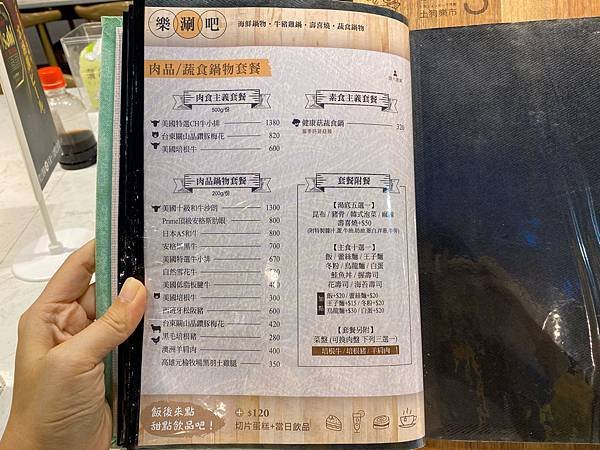 樂涮吧
海鮮鍋物・牛豬雞鍋・壽喜燒・蔬食鍋物
肉品/蔬食鍋物套餐
肉食主義套餐
500g/份
美國特選CH牛小排 1380
台東關山晶鑽豚梅花 820
美國培根牛 600
素食主義套餐
健康菇蔬食鍋 320
肉品鍋物套餐
200g/份
美國十級和牛沙朗 1300
Prime頂級安格斯肋眼 800
日本A5和牛 800
安格斯黑牛 700
美國特選牛小排 670
自然雪花牛
美國低脂板腱牛 400
美國培根牛 300
西班牙松阪豬 600
台東關山晶鑽豚梅花 420
黑毛培根豬 280
澳洲羊肩肉 400
高雄元榆牧場黑羽土雞腿 350
套餐附餐
【湯底五選一】
昆布 / 豬骨 / 韓式泡菜 / 麻辣
壽喜燒+$50
【主食十選一】
飯 / 蕾絲麵 / 王子麵
冬粉 / 烏龍麵 / 白蛋
鮭魚丼 / 握壽司
花壽司 / 海苔壽司
飯+$20 / 蕾絲麵+$20
王子麵+$15 / 冬粉+$20
烏龍麵+$30 / 白蛋+$20
【套餐另附】
菜盤 (可換肉盤 下列三選一)
培根牛 / 培根豬 / 羊肩肉
飯後來點
甜點飲品吧！
+ $120
切片蛋糕+當日飲品